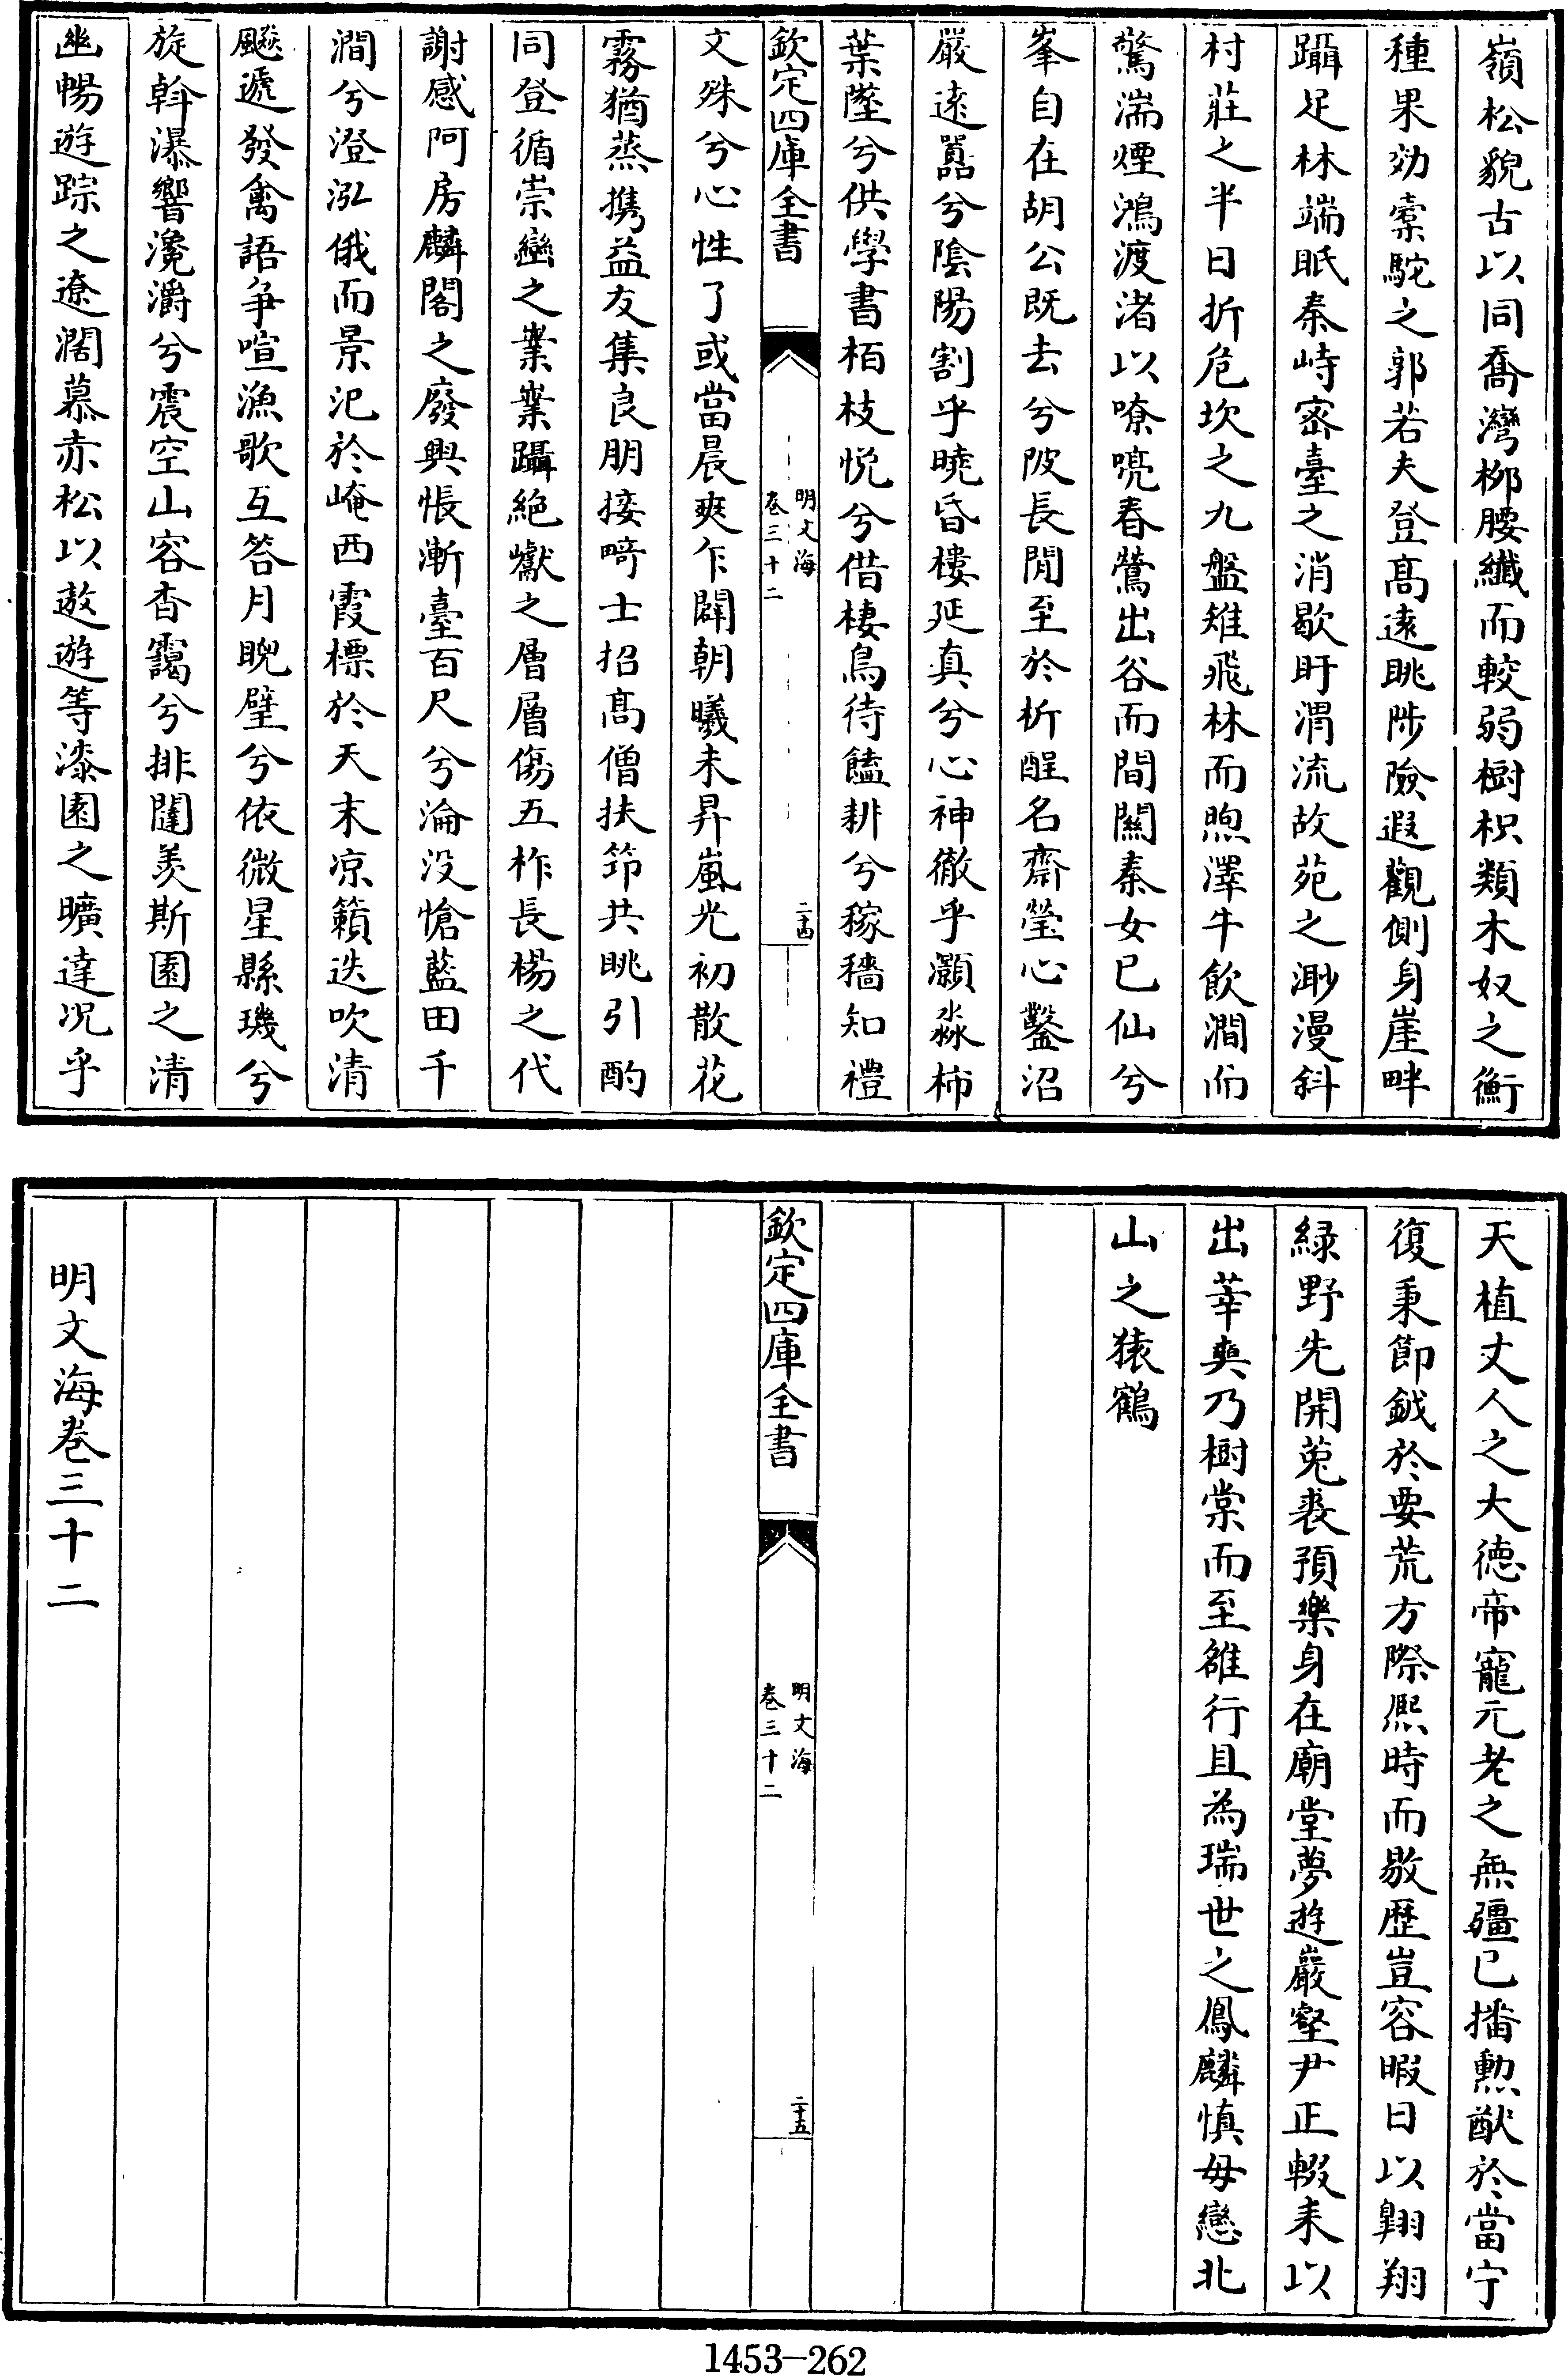 嶺松貌古以同喬灣栁腰纖而較弱樹枳類木奴之衡
種果効槖駝之郭若夫登髙遠眺陟險遐觀側身崖畔
躡足林端眂秦峙宻臺之消歇盱渭流故苑之渺漫斜
村莊之半日折危坎之九盤雉飛林而煦澤牛飲澗而
驚湍煙鴻渡渚以嘹喨春鶯出谷而間關秦女已仙兮
峯自在胡公既去兮陂長閒至於析酲名齋瑩心鑿沼
嚴遠嚣兮陰陽割乎曉昏樓延真兮心神徹乎灝淼柿
葉墜兮供學書栢枝恱兮借棲鳥待饁耕兮稼穡知禮
欽定四庫全書
明文海
卷三十二
二十四
文殊兮心性了或當晨爽乍闢朝曦未昇嵐光初散花
霧猶蒸携益友集良朋接畸士招髙僧扶笻共眺引酌
同登循崇巒之業業躡絶巘之層層傷五柞長楊之代
謝感阿房麟閣之廢興悵漸臺百尺兮淪没愴藍田千
澗兮澄泓俄而景汜於崦西霞標於天末凉籟迭吹清
飈遞發禽語爭喧漁歌互答月睨壁兮依微星縣璣兮
旋斡瀑響灔灂兮震空山容杳靄兮排闥羡斯園之清
幽暢遊踪之遼濶慕赤松以敖遊等漆園之曠達况乎
天植丈人之大徳帝寵元老之無疆已播勲猷於當宁
復秉節鉞於要荒方際熈時而敭歴豈容暇日以翺翔
緑野先開菟裘預樂身在廟堂夢遊巖壑尹正輟耒以
出莘奭乃樹棠而至雒行且為瑞世之鳳麟慎毋戀北
山之猿鶴
欽定四庫全書
明文海
卷三十二
二十五
明文海卷三十二
1453-262